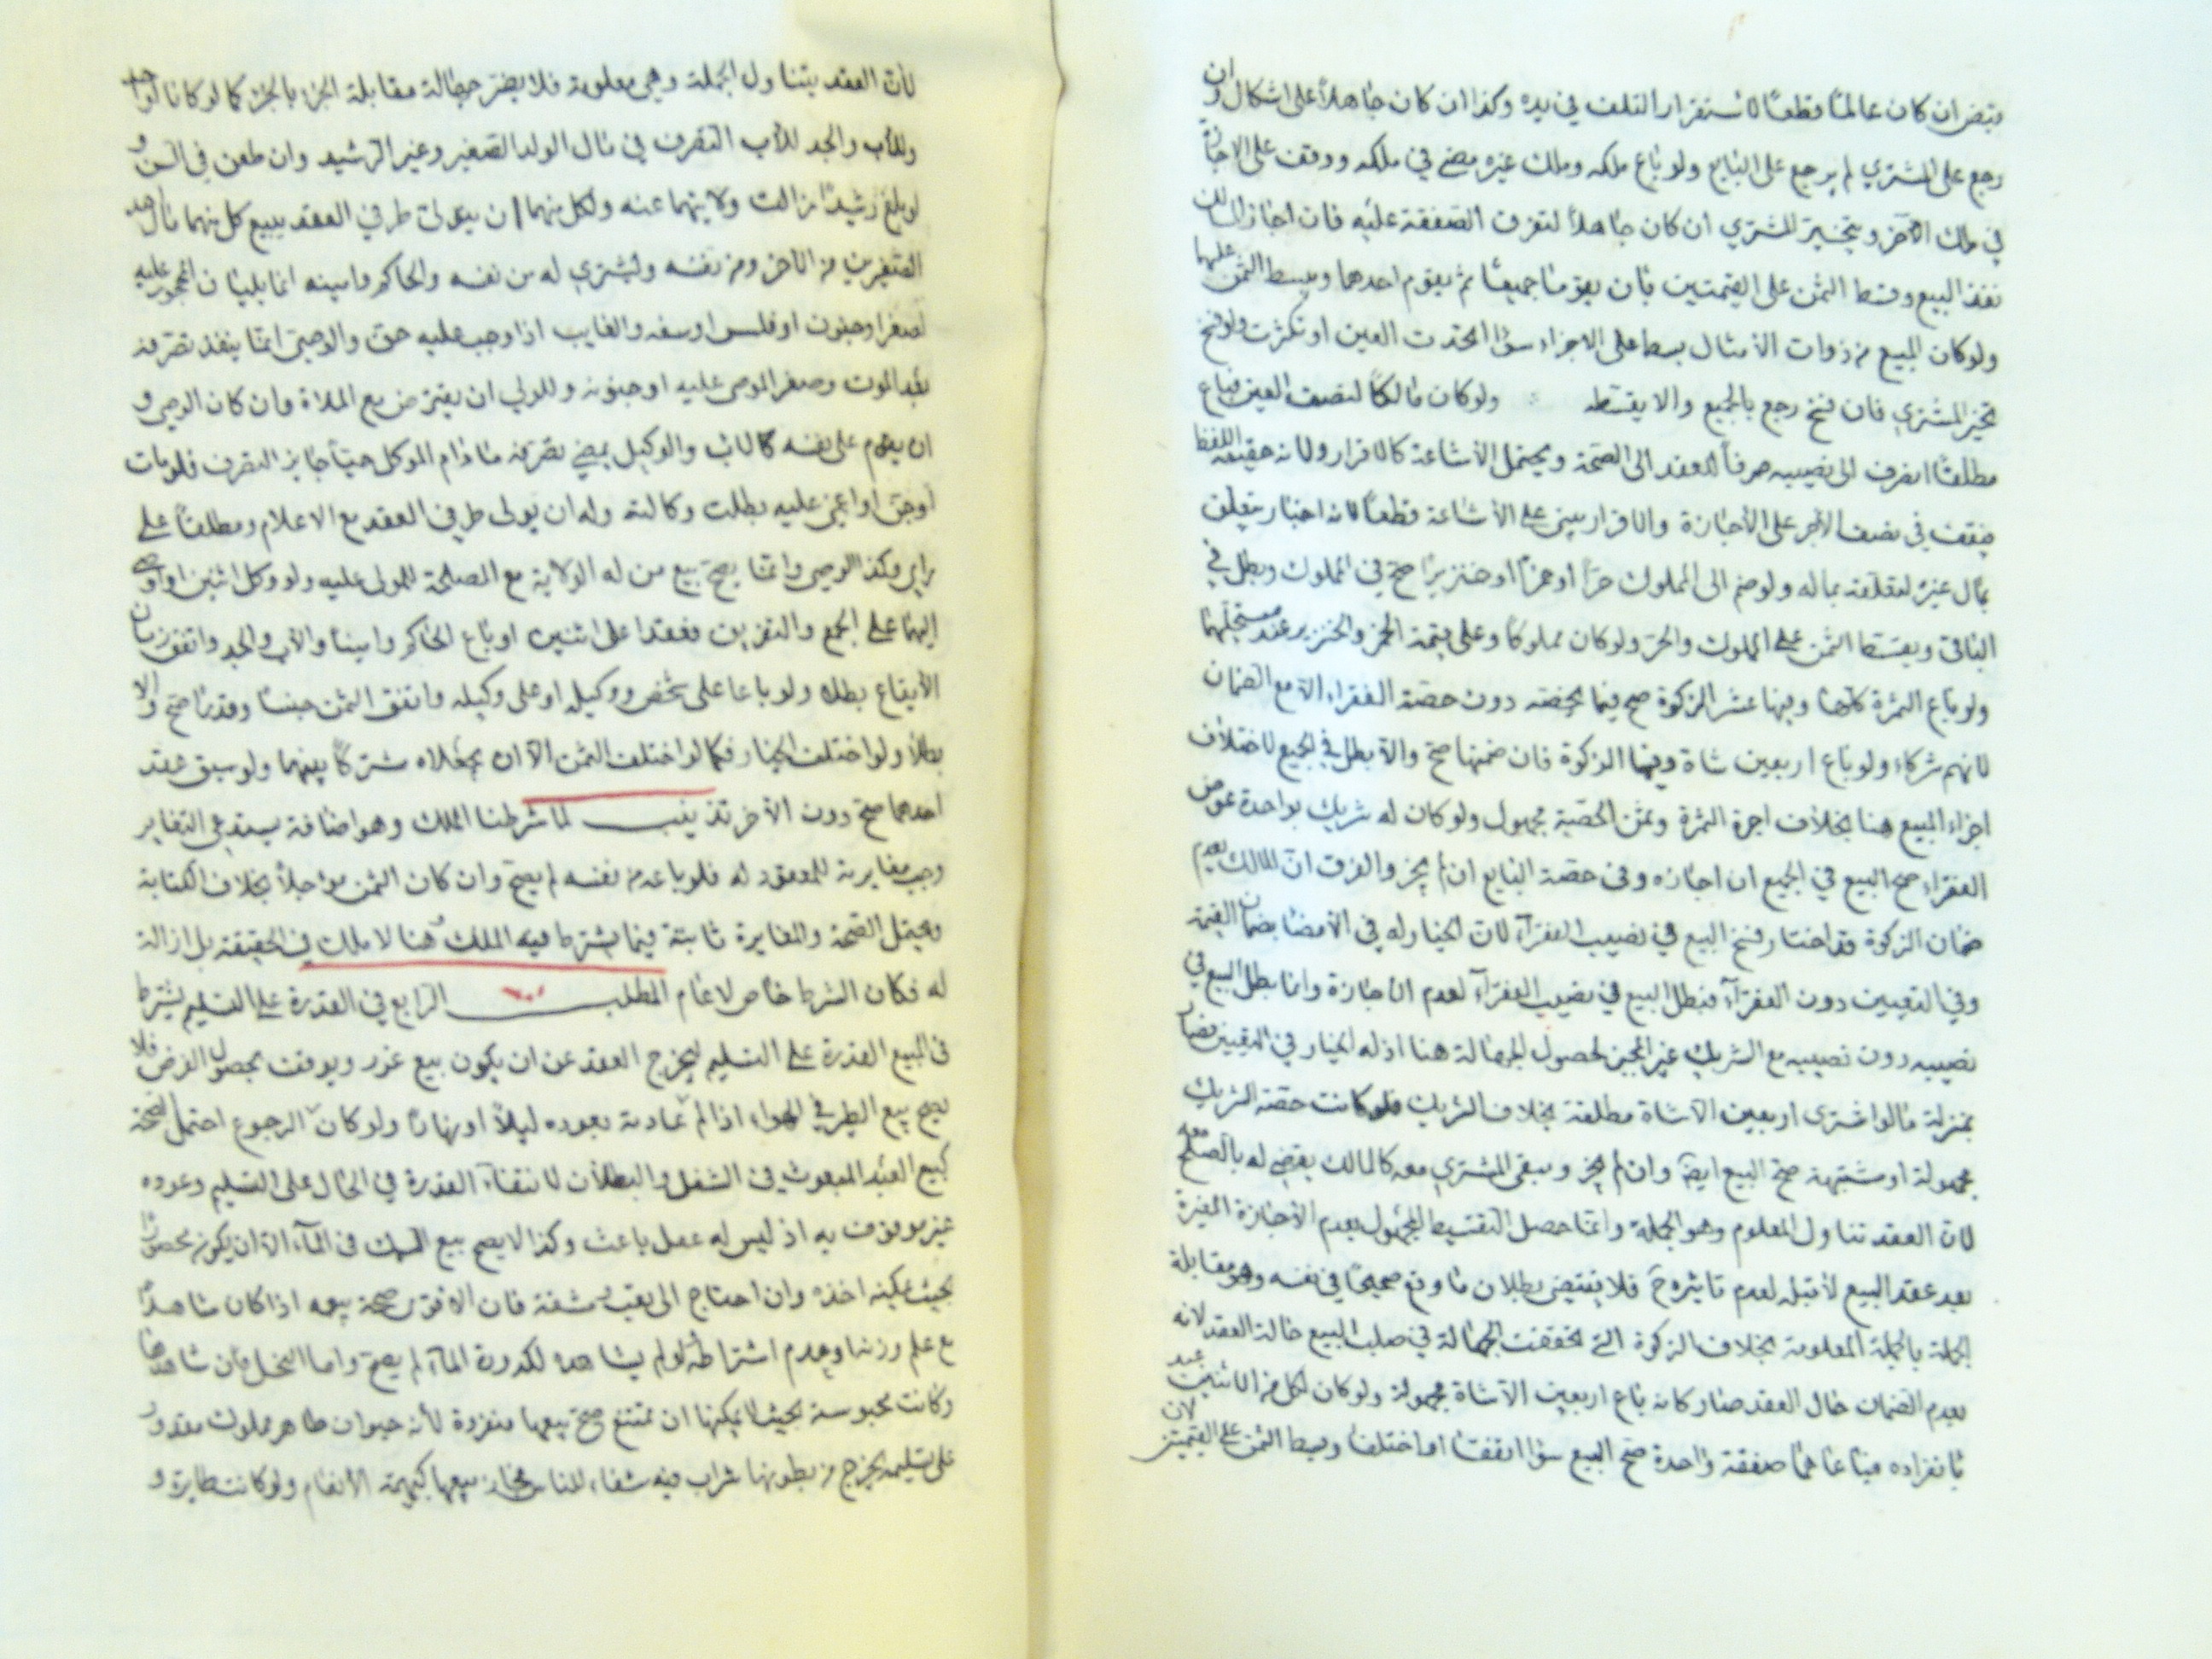 قبض ان كان عالمًا قطعًا لاستقرار التلف في يده وكذا ان كان جاهلاً على اشكال وان
رجع على المشتري لم يرجع على البايع ولو باع ملكه وملك غيره مضى في ملكه ووقف على الاجازة
في ملك الآخر ويتخير المشتري ان كان جاهلاً لتفرق الصفقة عليه فان اجاز المالك
نفذ البيع وقسط الثمن على القيمتين بأن يقوما جميعًا ثم يقوم احدهما ويبسط الثمن عليهما
ولو كان المبيع من ذوات الأمثال بسط على الاجزاء سواء اتحدت العين او تكثرت ولو فسخ
تخير المشتري فان فسخ رجع بالجميع والا بقسطه ولو كان مالكًا لنصف العين فباع
مطلقًا انصرف الى نصيبه صرفًا للعقد الى الصحة ويحتمل الأشاعة كالاقرار ولأنه حقيقة اللفظ
فيقف في نصف الآخر على الأجازة والاقرار يبنى على الأشاعة قطعًا لأنه اخبار يتعلق
بمال غيره لتعلقه بماله ولو ضم الى المملوك حرًا او خمرًا او خنزيرًا صح في المملوك وبطل في
الباقي ويقسط الثمن على المملوك والحر ولو كان مملوكًا وعلى قيمة الخمر والخنزير عند مستحليهما
ولو باع الثمرة كلها وفيها عشر الزكوة صح فيما يخصه دون حصة الفقراء الا مع الضمان
لأنهم شركاء ولو باع اربعين شاة وفيها الزكوة فان ضمنها صح والا بطل في الجميع لاختلاف
اجزاء المبيع هنا بخلاف اجزاء الثمرة وثمن الحصة مجهول ولو كان له شريك بواحدة عوض
الفقراء صح البيع في الجميع ان اجازه وفي حصة البايع ان لم يجز والفرق ان المالك بعدم
ضمان الزكوة قد اختار فسخ البيع في نصيب الفقراء لان الخيار له في الأمضا بضمان القيمة
وفي التعيين دون الفقراء فبطل البيع في نصيب الفقراء لعدم الأجازة وانما بطل البيع في
نصيبه دون نصيبه مع الشريك غير المجيز لحصول الجهالة هنا اذ له الخيار في التعيين فصار
بمنزلة ما لو اشترى اربعين الا شاة مطلقة بخلاف الشريك فلو كانت حصة الشريك
مجهولة او مشتبهة صح البيع ايضًا وان لم يجز ويبقى المشتري معه كالمالك يقضي له بالصلح معه
لان العقد تناول المعلوم وهو الجملة وانما حصل التقسيط المجهول بعدم الأجازة المتأخرة
بعد عقد البيع لا قبله لعدم تاثيره ح فلا يقتضي بطلان ما وقع صحيحًا في نفسه وهو مقابلة
الجملة بالجملة المعلومة بخلاف الزكوة التي تحققت الجهالة في صلب البيع حالة العقد لأنه
بعدم الضمان حال العقد صار كانه باع اربعين الا شاة مجهولة ولو كان لكل من الاثنين عبد
بانفراده فباعاهما صفقة واحدة صح البيع سواء اتفقا او اختلفا ويبسط الثمن على القيمتين لان
لان العقد يتناول الجملة وهي معلومة فلا يضر جهالة مقابلة الجزء بالجزء كما لو كانا لواحد
وللأب والجد للأب التصرف في مال الولد الصغير وغير الرشيد وان طعن في السن و
لو بلغ رشيدًا زالت ولايتهما عنه ولكل منهما ان يتولى طرفي العقد يبيع كل منهما مال احد
الصغيرين من الآخر ومن نفسه ويشتري له من نفسه والحاكم وامينه انما يليان المحجور عليه
لصغر او جنون او فلس او سفه والغايب اذا وجب عليه حق والوصي انما ينفذ تصرفه
بعد الموت وصغر الموصى عليه او جنونه وللولي ان يقترض مع الملاة وان كان الوصي و
ان يقوم على نفسه كالأب والوكيل يمضي تصرفه ما دام الموكل حيًا جايز التصرف فلو مات
او جن او اغمي عليه بطلت وكالته وله ان يتولى طرفي العقد مع الاعلام ومطلقًا على
راي وكذا الوصي وانما يصح بيع من له الولاية مع المصلحة للمولى عليه ولو وكل اثنين او اوصى
اليهما على الجمع والتفريق فعقدا على اثنين او باع الحاكم وامينه والأب والجد واتفق زمان
الأيقاع بطلا ولو باعا على شخص ووكيله او على وكيليه واتفق الثمن جنسًا وقدرًا صح والا
بطلا ولو اختلف الخيار فكما لو اختلف الثمن الا ان يجعلاه مشتركًا بينهما ولو سبق عقد
احدهما صح دون الآخر تذنيب لما شرطنا الملك وهو اضافة يستدعي التغاير
وجب مغايرة للمعقود له فلو باعه من نفسه لم يصح وان كان الثمن مؤجلاً بخلاف الكتابة
ويحتمل الصحة والمغايرة ثابتة فيما يشترط فيه الملك وهنا لا ملك في الحقيقة بل ازالة
له فكان الشرط خاص لا عام المطلب الرابع في القدرة على التسليم يشترط
في المبيع القدرة على التسليم ليخرج العقد عن ان يكون بيع غرر ويوقف بحصول الغرض فلا
يصح بيع الطير في الهواء اذا لم عادته بعوده ليلاً او نهارًا ولو كان الرجوع احتمل الصحة
كبيع العبد المبعوث في الشغل والبطلان لانتفاء القدرة في الحال على التسليم وعوده
غير موثوق به اذ ليس له عقل باعث وكذا لا يصح بيع السمك في المآء الا ان يكون محصورًا
بحيث يمكنه اخذه وان احتاج الى تعب ومشقة فان الاقوى صحة بيعه اذا كان مشاهدًا
مع علم وزنها وعدم اشتراطه ولو لم يشاهده لكدورة المآء لم يصح واما النحل فان شاهدها
وكانت محبوسة بحيث لا يمكنها ان تمتنع صح بيعها منفردة لأنه حيوان طاهر مملوك مقدور
على تسليمه يخرج من بطونها شراب فيه شفاء للناس فجاز بيعها كبهيمة الأنعام ولو كانت طايرة و